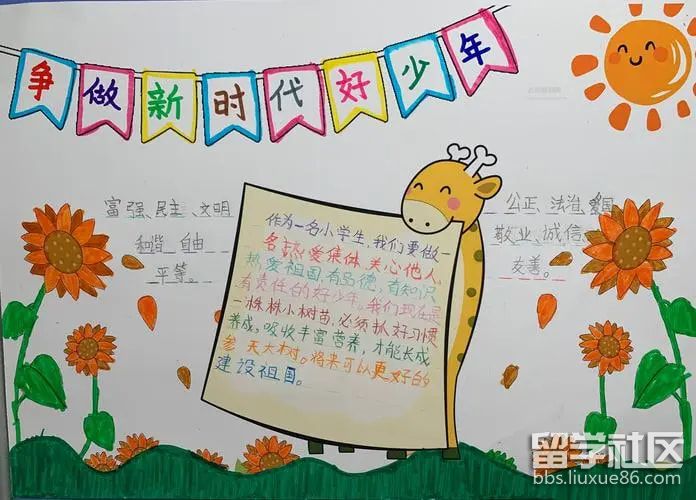 争做新时代好少年
富强、民主、文明
和谐 自由
平等。
作为一名小学生,我们要做一
名热爱集体,关心他人,
热爱祖国,有道德,有知识,
有责任的好少年。我们现在是
一株株小树苗,必须抓好习惯
养成,吸收丰富营养,才能长成
参天大树。将来可以更好的
建设祖国。
公正、法治、爱国
敬业、诚信
友善。
留学社区
bbs.liuxue86.com